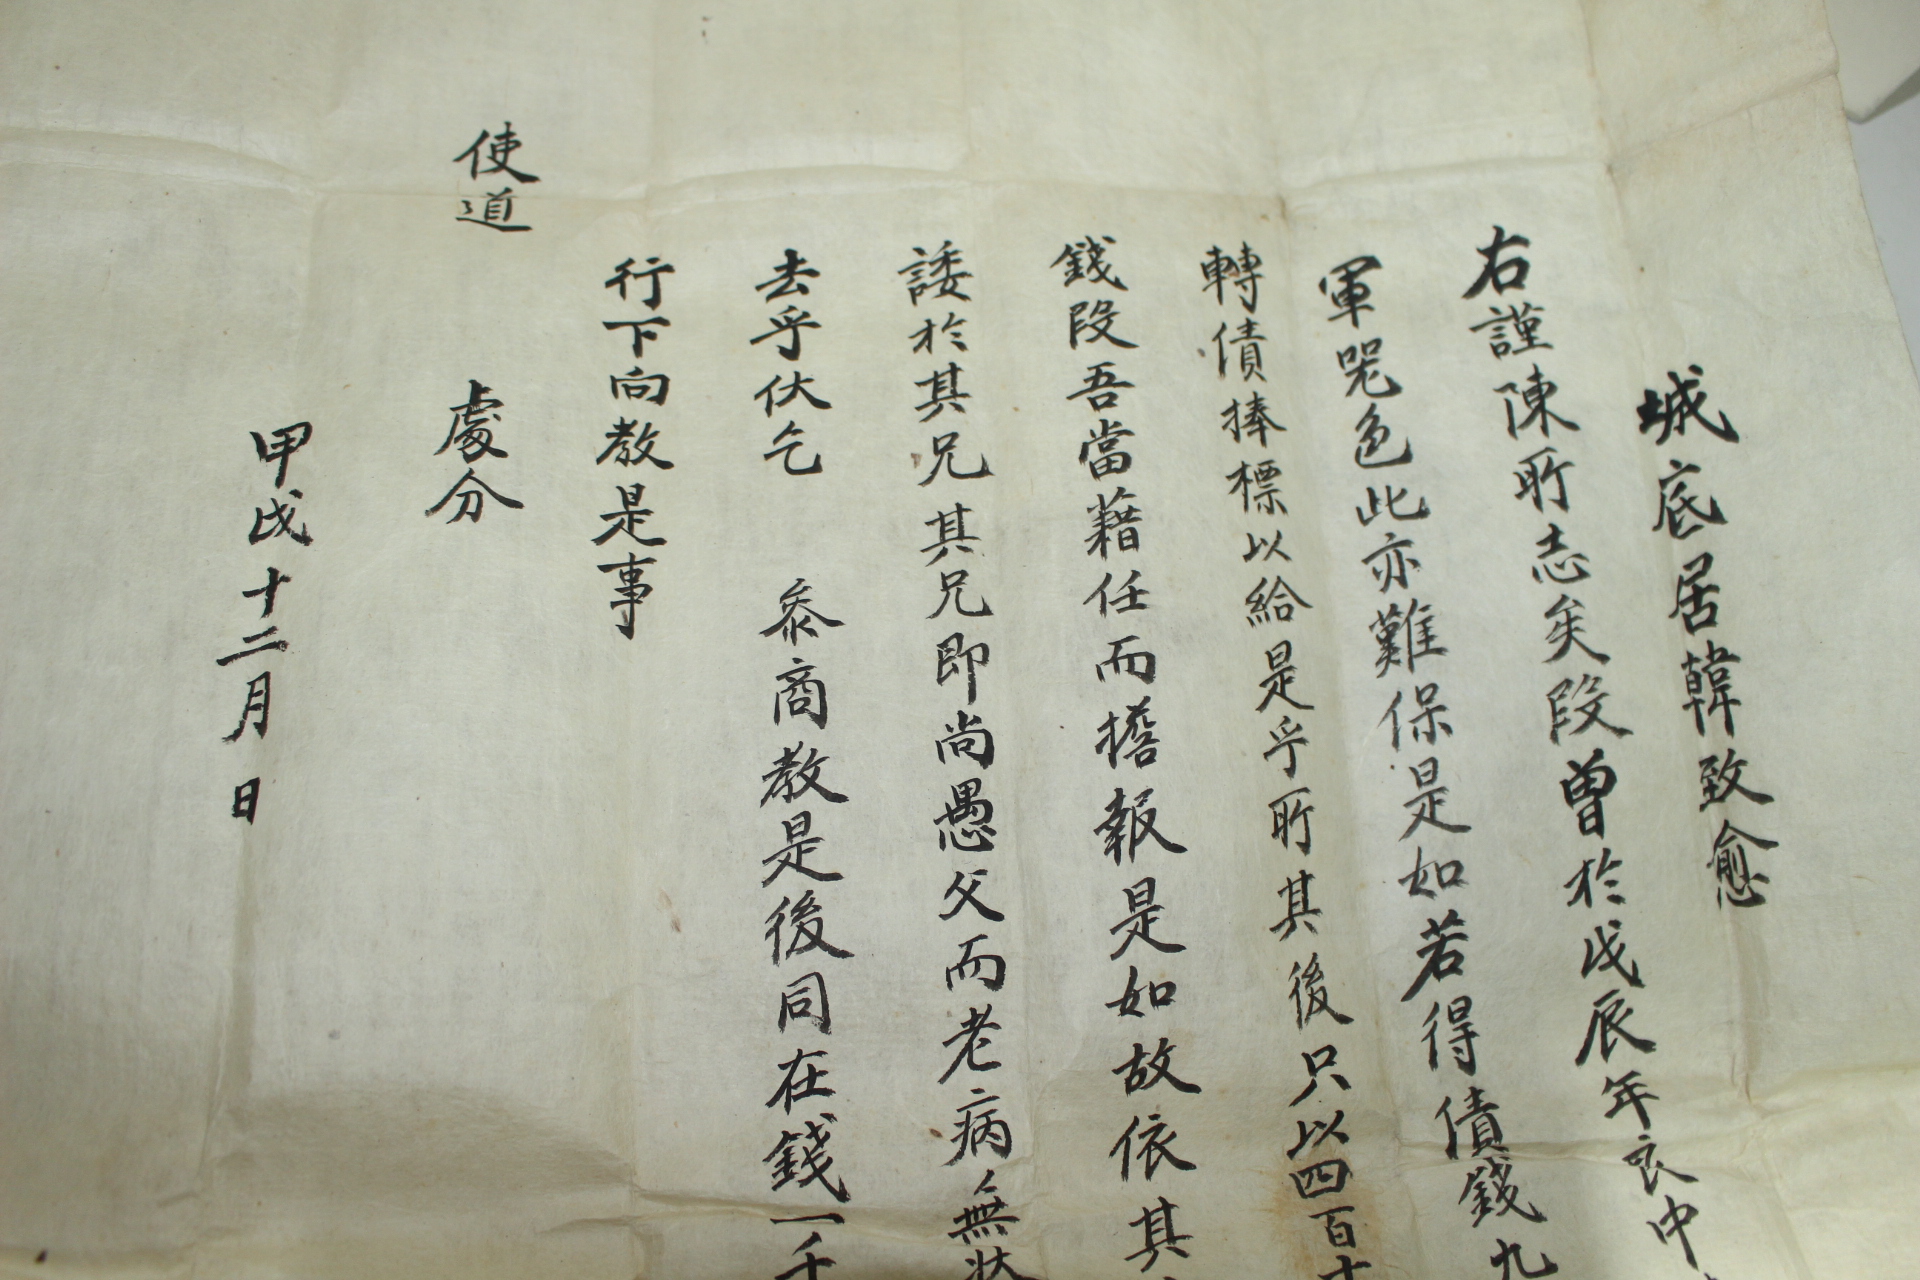 城底居韓致愈
右謹陳所志矣段曾於戊辰年良中
軍器色此亦難保是如若得債錢九
轉債捧標以給是乎所其後只以四百十
錢段吾當藉任而擔報是如故依其
諉於其兄其兄即尚愚父而老病無狀
去乎伏乞 叅商教是後同在錢一千
行下向教是事
使道 處分
甲戌十二月 日